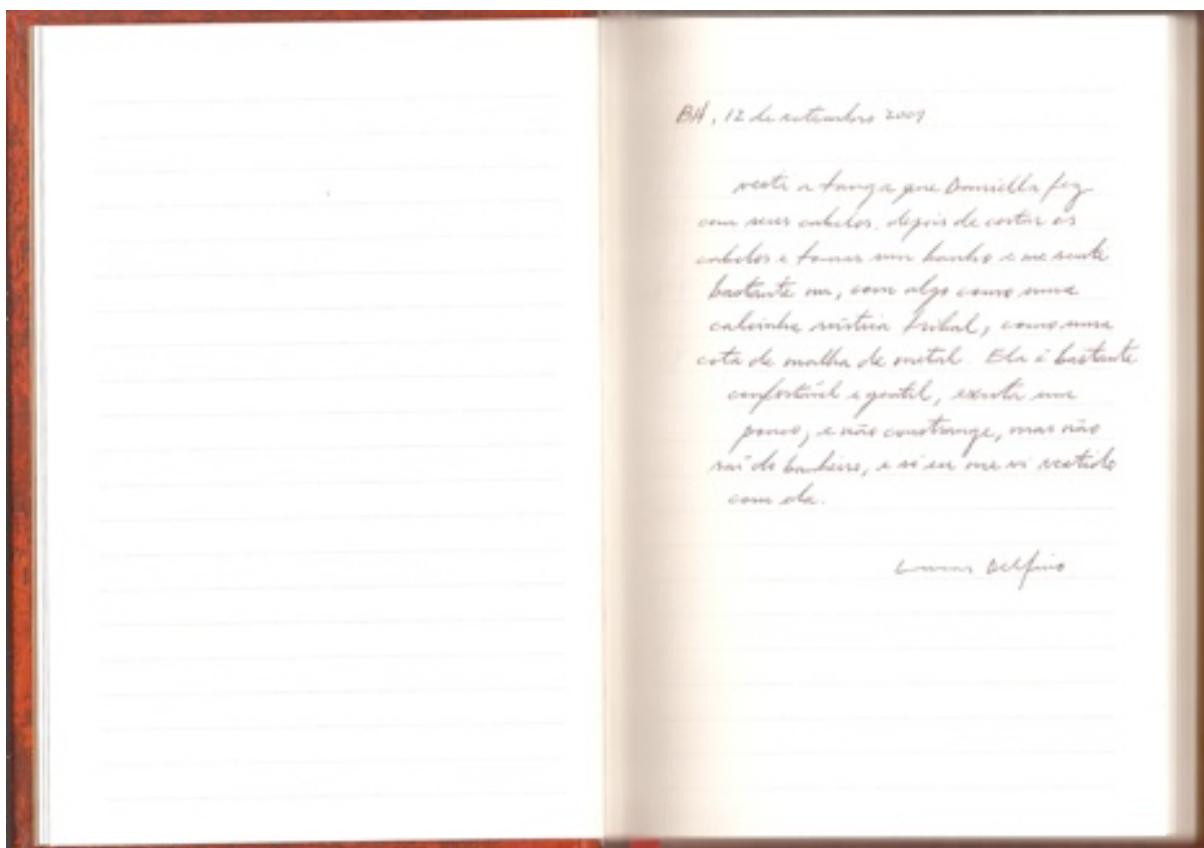 BH, 12 de setembro 2009
vesti a tanga que Daniella fez
com seus cabelos. depois de cortar os
cabelos e tomar um banho e me senti
bastante nu, com algo como uma
calcinha rústica tribal, como uma
cota de malha de metal. Ela é bastante
confortável e gentil, excita um
pouco, e não constrange, mas não
saí do banheiro, e só eu me vi vestido
com ela.
Delfino